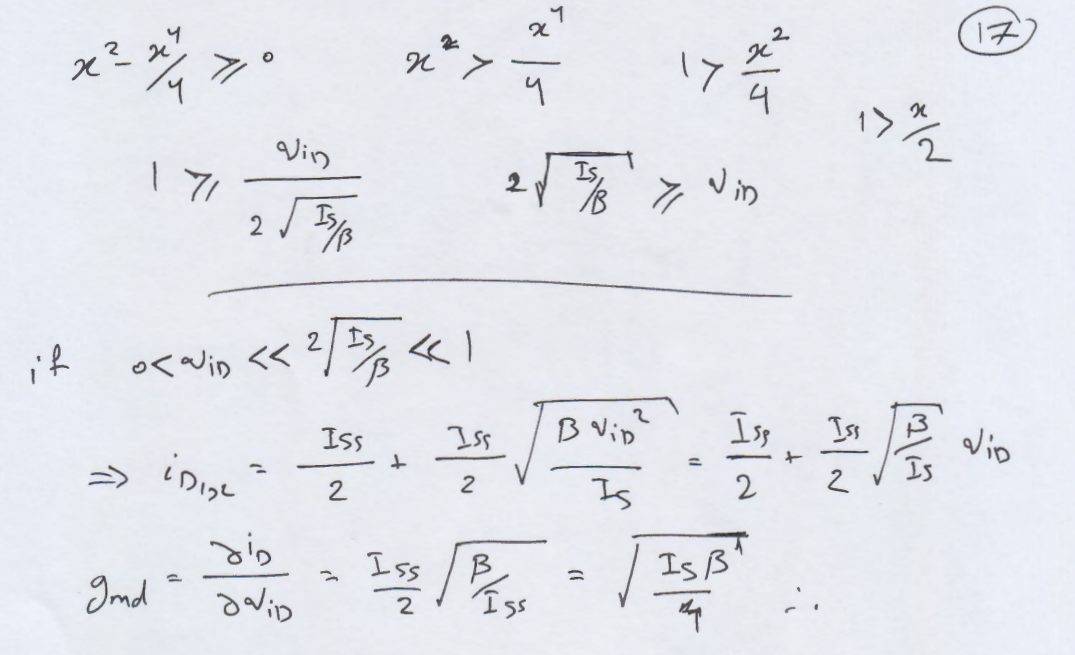 x² - x⁴/4 ⩾ 0    x² > x⁴/4    1 > x²/4    (17)
1 > x/2
1 ⩾ v_iD / (2√(Is/β))    2√(Is/β) ⩾ v_iD
if    0 < v_iD << 2√(Is/β) << 1
⇒ i_D1,2 = Iss/2 + Iss/2 √(β v_iD² / Is) = Iss/2 + Iss/2 √(β/Is) v_iD
g_md = ∂i_D/∂v_iD = Iss/2 √(β/Iss) = √(Is β/4) ∴